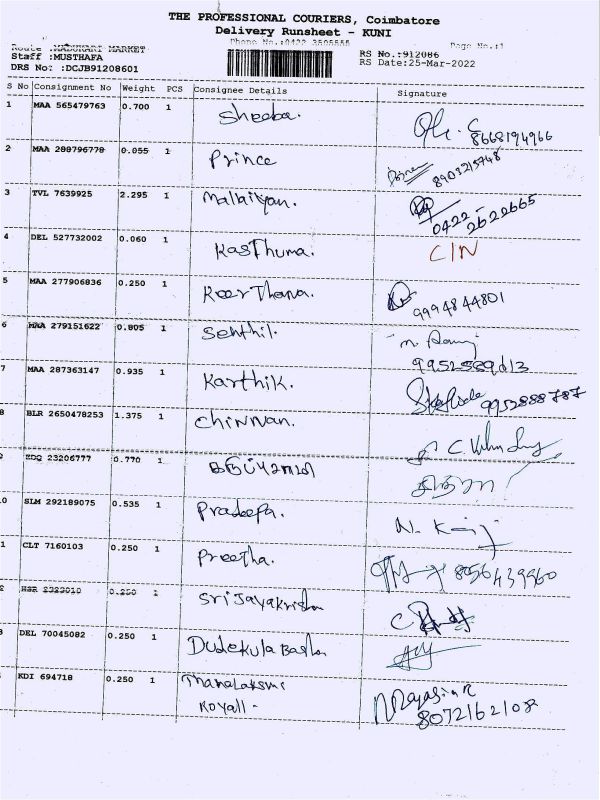 THE PROFESSIONAL COURIERS, Coimbatore
Delivery Runsheet - KUNI
Phone No.:0422 3505555 Page No.:1
Route :MADUKARI MARKET
Staff :MUSTHAFA RS No.:912086
DRS No: :DCJB91208601 RS Date:25-Mar-2022
S No Consignment No Weight PCS Consignee Details Signature
1 MAA 565479763 0.700 1 Sheeba.
8668194966
2 MAA 288796778 0.055 1 Prince
8903215748
3 TVL 7639925 2.295 1 Malaiyan.
0422-2622665
4 DEL 527732002 0.060 1 Kasthuma. C/N
5 MAA 277906836 0.250 1 Keerthana.
9994844801
6 MAA 279151622 0.805 1 Senthil.
9952589613
7 MAA 287363147 0.935 1 Karthik.
9952888787
8 BLR 2650478253 1.375 1 Chinnan.
9 EDQ 23206777 0.770 1
0 SLM 292189075 0.535 1 Pradeepa.
1 CLT 7160103 0.250 1 Preetha.
8056439960
2 HSR 2323010 0.250 1 Srijayakrishn
3 DEL 70045082 0.250 1 Dudekula Basha
KDI 694718 0.250 1 Mahalakshmi
Koyall-
8072162108